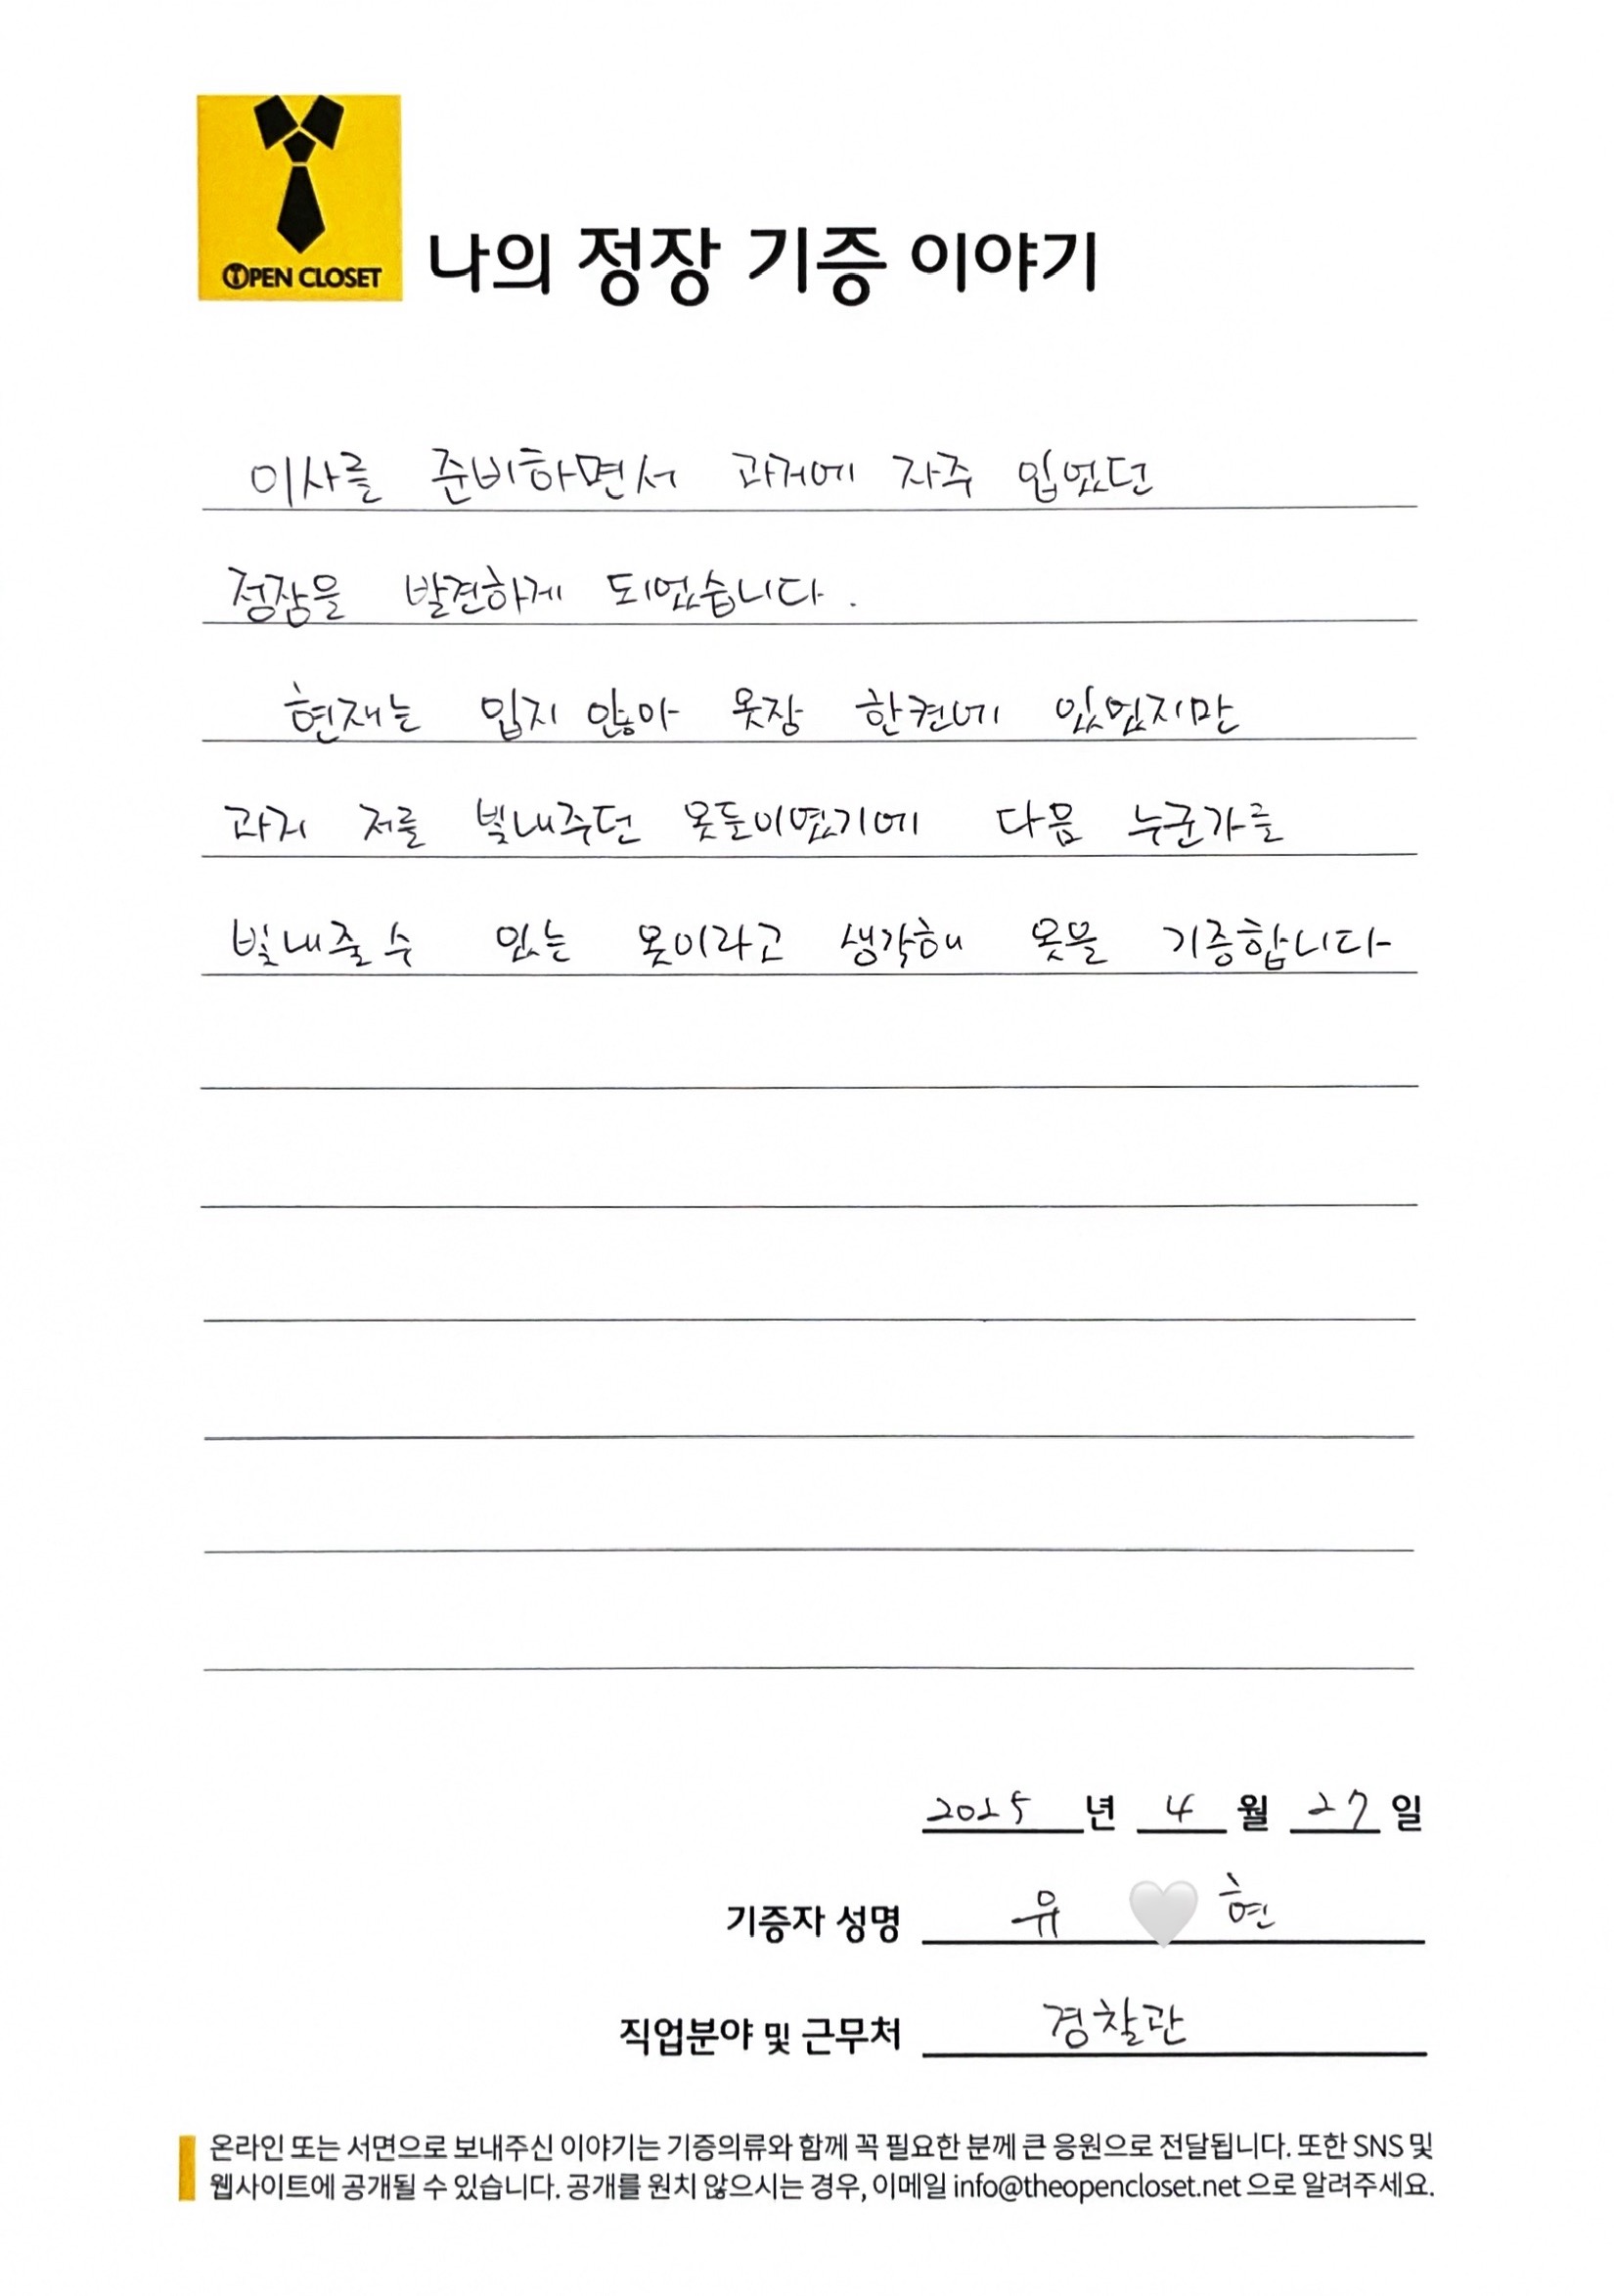 OPEN CLOSET
나의 정장 기증 이야기
이사를 준비하면서 과거에 자주 입었던
정장을 발견하게 되었습니다.
현재는 입지 않아 옷장 한켠에 있었지만
과거 저를 빛내주던 옷들이였기에 다음 누군가를
빛내줄 수 있는 옷이라고 생각해 옷을 기증합니다
2025 년 4 월 27 일
기증자 성명 유 🤍 현
직업분야 및 근무처 경찰관
온라인 또는 서면으로 보내주신 이야기는 기증의류와 함께 꼭 필요한 분께 큰 응원으로 전달됩니다. 또한 SNS 및
웹사이트에 공개될 수 있습니다. 공개를 원치 않으시는 경우, 이메일 info@theopencloset.net 으로 알려주세요.